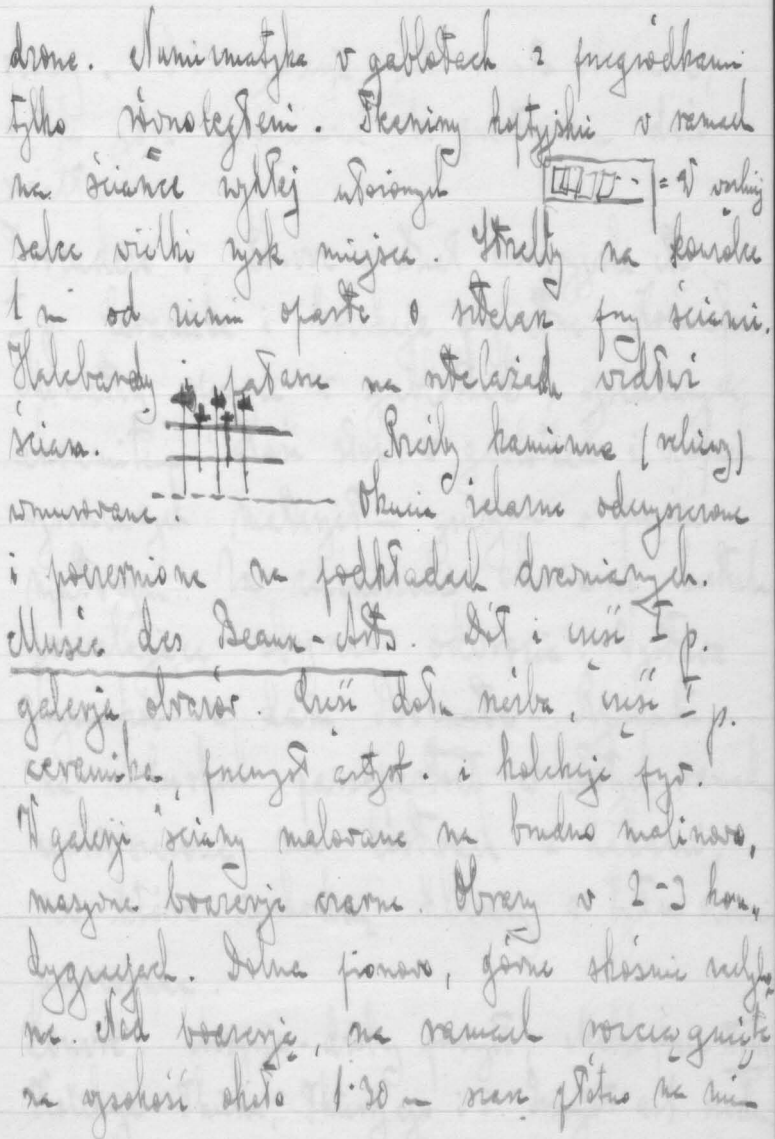 drone. Numizmatyka w gablotach z przegródkami
tylko równoległemi. Tkaniny koptyjskie w ramach
na ściance zwykłej ułożonych = W
salce wielki zysk miejsca. Strzelby na
1 m od ziemi oparte o stelaż przy ścianie.
Halebardy i pałasze na stelażach wzdłuż
ścian. Rzeźby kamienne (reliewy)
wmurowane. Okucia żelazne odczyszczone
i poczernione na podkładach drewnianych.
Musée des Beaux-Arts. Dół i część I p.
galerja obrazów. Część dołu rzeźba, część I p.
ceramika, przemysł artyst. i kolekcje pryw.
W galerji ściany malowane na brudno malinowo,
masywne boazerje czarne. Obrazy w 2-3 kon„
dygnacjach. Dolne pionowo, górne skośnie
ne. Nad boazerją, na ramach rozciągnięte
na wysokość około 1·30 m szare płótno na